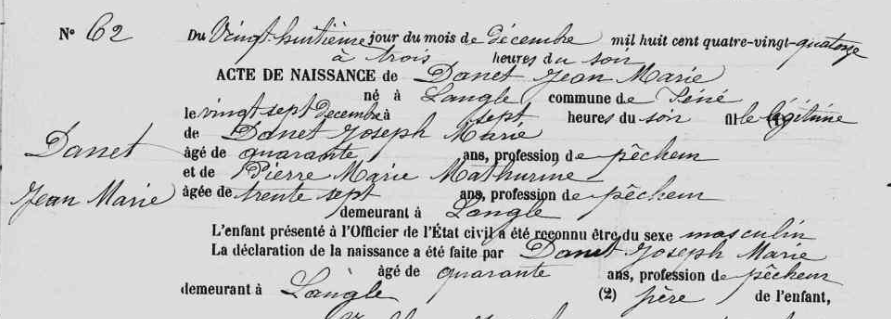 N° 62
Du Vingt huitième jour du mois de décembre mil huit cent quatre-vingt-quatorze
à trois heures du soir
ACTE DE NAISSANCE de Danet Jean Marie
né à Langle commune de Séné
le vingt sept Decembre à sept heures du soir fils légitime
de Danet Joseph Marie
âgé de quarante ans, profession de pêcheur
et de Pierre Marie Mathurine
âgée de trente sept ans, profession de pêcheur
demeurant à Langle
Danet
Jean Marie
L'enfant présenté à l'Officier de l'État civil a été reconnu être du sexe masculin
La déclaration de la naissance a été faite par Danet Joseph Marie
âgé de quarante ans, profession de pêcheur
demeurant à Langle (2) père de l'enfant,